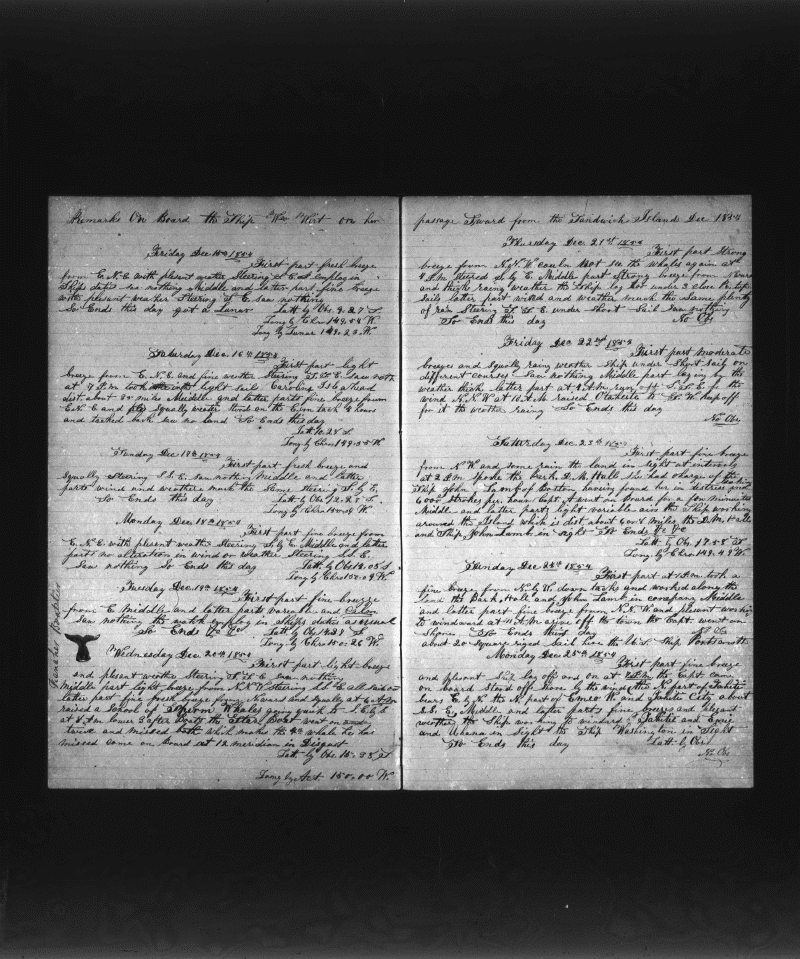 Remarks On Board the Ship Wm Wirt on her
Friday Dec 15th 1854
First part fresh breeze
from E.N.E with plesent weather Steering S.E.
Ships duties saw nothing Middle and latter part fine breeze
with plesent weather Steering S.E. saw nothing
So Ends this day got a Lunar Latt by Obs 9.27 S
Long by Chro 149.54 W
Long by Lunar 149.23 W
Saturday Dec 16th 1854
First part light
breeze from E.N.E and fine weather Steering saw
at 7 P.M. took light sail. Caroline Isle ahead
dist about 20 miles Middle and latter parts fine breeze from
E.N.E and Squally stood on the Eastern tack 4 hours
and tacked saw no land So Ends this day
Latt 10.28 S
Long by Chro 149.55 W
Sunday Dec 17th 1854
First part fresh breeze and
Squally Steering S.S.E. saw nothing Middle and latter
parts wind and weather much the Same Steering S. by E.
So Ends this day Latt by Obs 12.28 S
Long by Chro
Monday Dec 18th 1854
First part fine breeze from
E.N.E with plesent weather Steering S. by E. Middle and latter
parts no alteration in wind or weather Steering S.S.E.
Saw nothing So Ends this day Latt. by Obs 13.05 S
Long by Chro 150.09 W
Tuesday Dec. 19th 1854
First part fine breeze
from E. Middle and latter parts Variable and Calm
Saw nothing the watch employ in ships duties as usual
So Ends &c &c Latt by Obs
Long by Chro 150.26 W.
Wednesday Dec. 20th 1854
First part light breeze
and plesent weather Steering saw nothing
Middle part light breeze from N.N.W Steering S.S.E all sail on
latter part fresh breeze from N.ward and Squally at
raised a School of Sperm Whales going quick to
at 8 A.M. lower 3 after Boat went on and
twice and missed both which makes the 4th whale he has
missed come on board at 12 meridian in Disgust
Latt by Obs 15.35 S
Long by Act 150.00 W.
passage Homward from the Sandwich Island Dec 1854
Thursday Dec. 21st 1854
First part Strong
breeze from N. by W could not see the whales again at
4 P.M. steered S. by E Middle part Strong breeze from
and thick rainy weather the Ship lay under 2 close Reef top
Sails latter part wind and weather much the Same plenty
of rain Steering S.S.E. under Short Sail Saw nothing
So Ends this day No Obs
Friday Dec 22nd 1854
First part moderate
breezes and Squally rainy weather Ship under Short sail on
different courses Saw nothing Middle part laying by the
weather thick latter part at 4 A.M. run off S.S.E. the
wind N.N.W at 11 A.M. raised Otaheite to keep off
for it the weather rainy So Ends this day
No Obs
Saturday Dec. 23rd 1854
First part fine breeze
from N.W and some rain the land in sight at intervals
at 2 P.M. spoke the Bark D.M. Hall She had charge of the
Ship John of Boston having found her in distress and leaking
6000 strokes per. hour Capt went on board for a few minutes
Middle and latter part light variable airs the Ship working
around the Island which is dist about 6 or 8 miles the D.M. Hall
and Ship John Lamb in sight So Ends &c &c
Latt by Obs 17.58 S
Long. by Chro 149.49 W.
Sunday Dec 24th 1854
First part at 1 P.M. took a
fine breeze from N. by W. down tacks and worked along the
land the Bark Hall and John Lamb in company Middle
and latter part fine breeze from N.N.W and plesent working
to windward at 11 A.M. arive off the town the Capt. went on
Shore So Ends this day
about 20 Square riged Sail here the U.S. Ship Portsmouth
Monday Dec. 25th 1854
First part fine breeze
and plesent Ship lay off and on at the Capt came
on board Stood off Shore by the wind the N. part of Tahite
bears E. by N. the N. part of Emeo W. and Tahite City about
S.S.E. Middle and latter parts fine breezes and plesent
weather the Ship working to windard of Tahite
in Sight the Ship Washington in Sight
So Ends this day Latt by Obs
No Obs